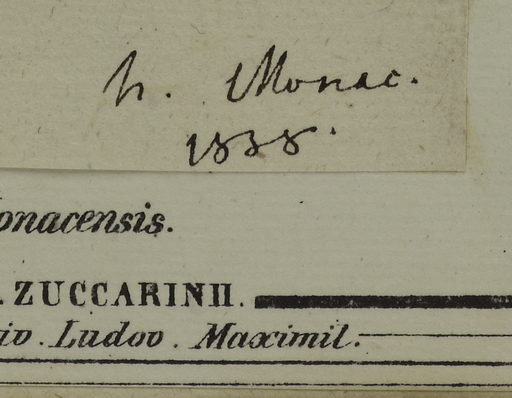 h. Monac.
1838.
onacensis.
. ZUCCARINII.
iv. Ludov. Maximil.